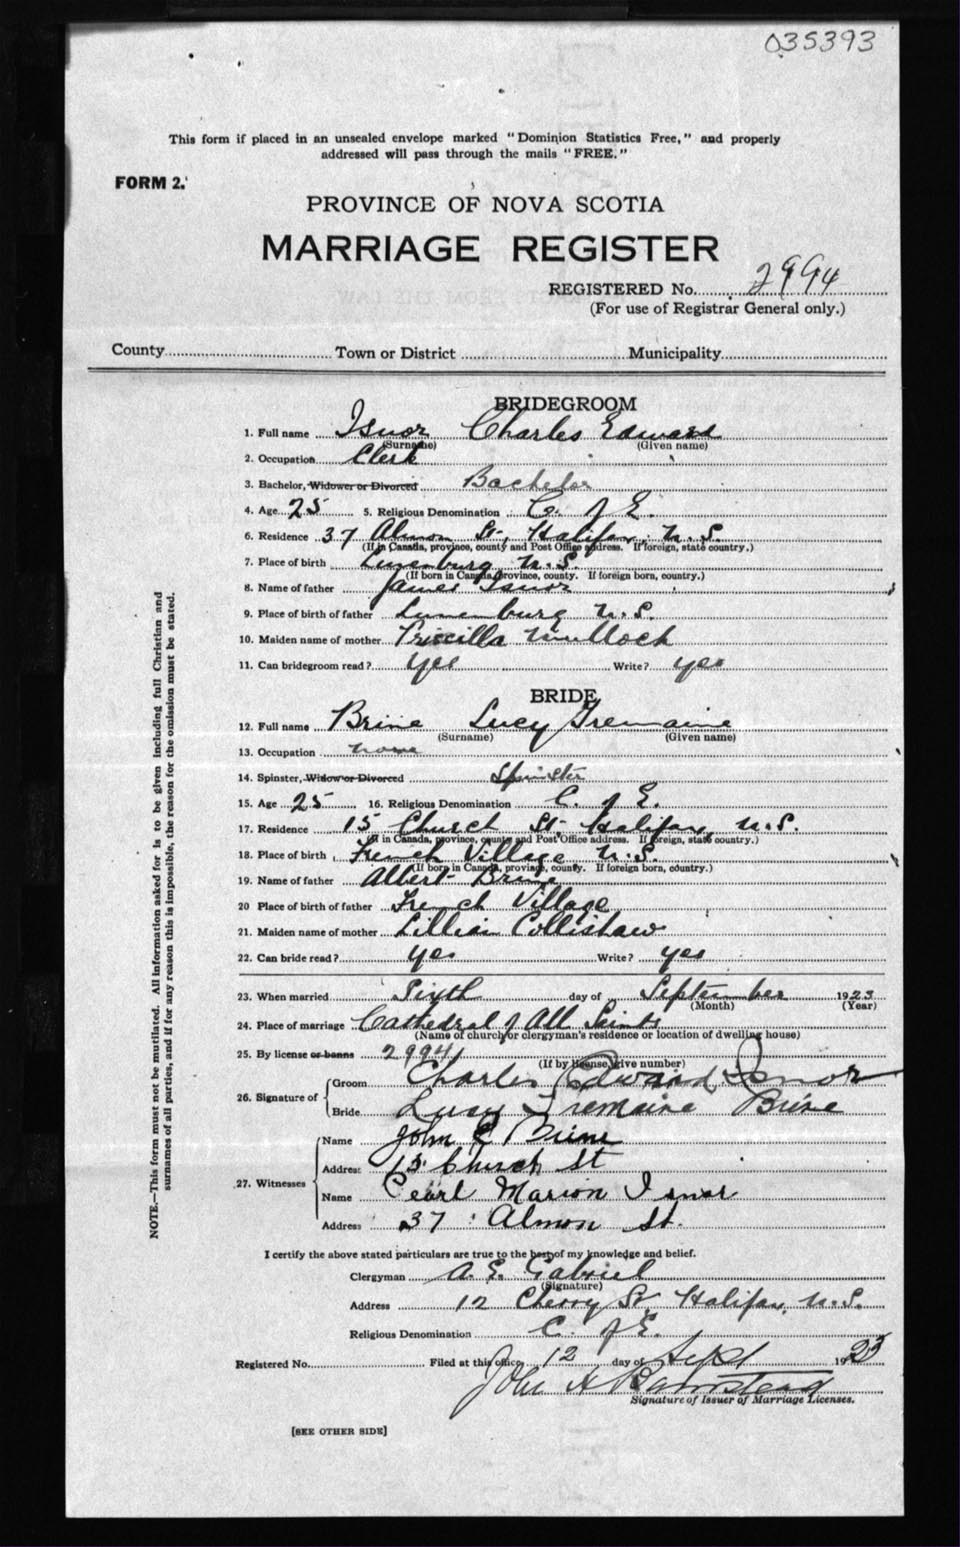 035393
This form if placed in an unsealed envelope marked "Dominion Statistics Free," and properly
addressed will pass through the mails "FREE."
FORM 2.
PROVINCE OF NOVA SCOTIA
MARRIAGE REGISTER
REGISTERED No. 2994
(For use of Registrar General only.)
County Town or District Municipality
BRIDEGROOM
1. Full name Isnor Charles Edward
(Surname) (Given name)
2. Occupation Clerk
3. Bachelor, Widower or Divorced Bachelor
4. Age 25 5. Religious Denomination C. of E.
6. Residence 37 Almon St., Halifax, N.S.
(If in Canada, province, county and Post Office address. If foreign, state country.)
7. Place of birth Lunenburg N.S.
(If born in Canada, province, county. If foreign born, country.)
8. Name of father James Isnor
9. Place of birth of father Lunenburg N.S.
10. Maiden name of mother Priscilla Mullock
11. Can bridegroom read? Yes Write? yes
BRIDE
12. Full name Brine Lucy Tremaine
(Surname) (Given name)
13. Occupation none
14. Spinster, Widow or Divorced Spinster
15. Age 25 16. Religious Denomination C. of E.
17. Residence 15 Church St, Halifax, N.S.
(If in Canada, province, county and Post Office address. If foreign, state country.)
18. Place of birth French Village N.S.
(If born in Canada, province, county. If foreign born, country.)
19. Name of father Albert Brine
20 Place of birth of father French Village
21. Maiden name of mother Lillian Collishaw
22. Can bride read? Yes Write? Yes
23. When married Sixth day of September 1923
(Month) (Year)
24. Place of marriage Cathedral of All Saints
(Name of church or clergyman's residence or location of dwelling house)
25. By license or banns 2994
(If by license, give number)
26. Signature of Groom Charles Edward Isnor
Bride Lucy Tremaine Brine
27. Witnesses Name John C Brine
Address 15 Church St
Name Pearl Marion Isnor
Address 37 Almon St.
I certify the above stated particulars are true to the best of my knowledge and belief.
Clergyman A. E. Gabriel
(Signature)
Address 12 Cherry St, Halifax, N.S.
Religious Denomination C. of E.
Registered No. Filed at this office 12 day of Sept 1923
John A
Signature of Issuer of Marriage Licenses.
[SEE OTHER SIDE]
NOTE.—This form must not be mutilated. All information asked for is to be given including full Christian and
surnames of all parties, and if for any reason this is impossible, the reason for the omission must be stated.